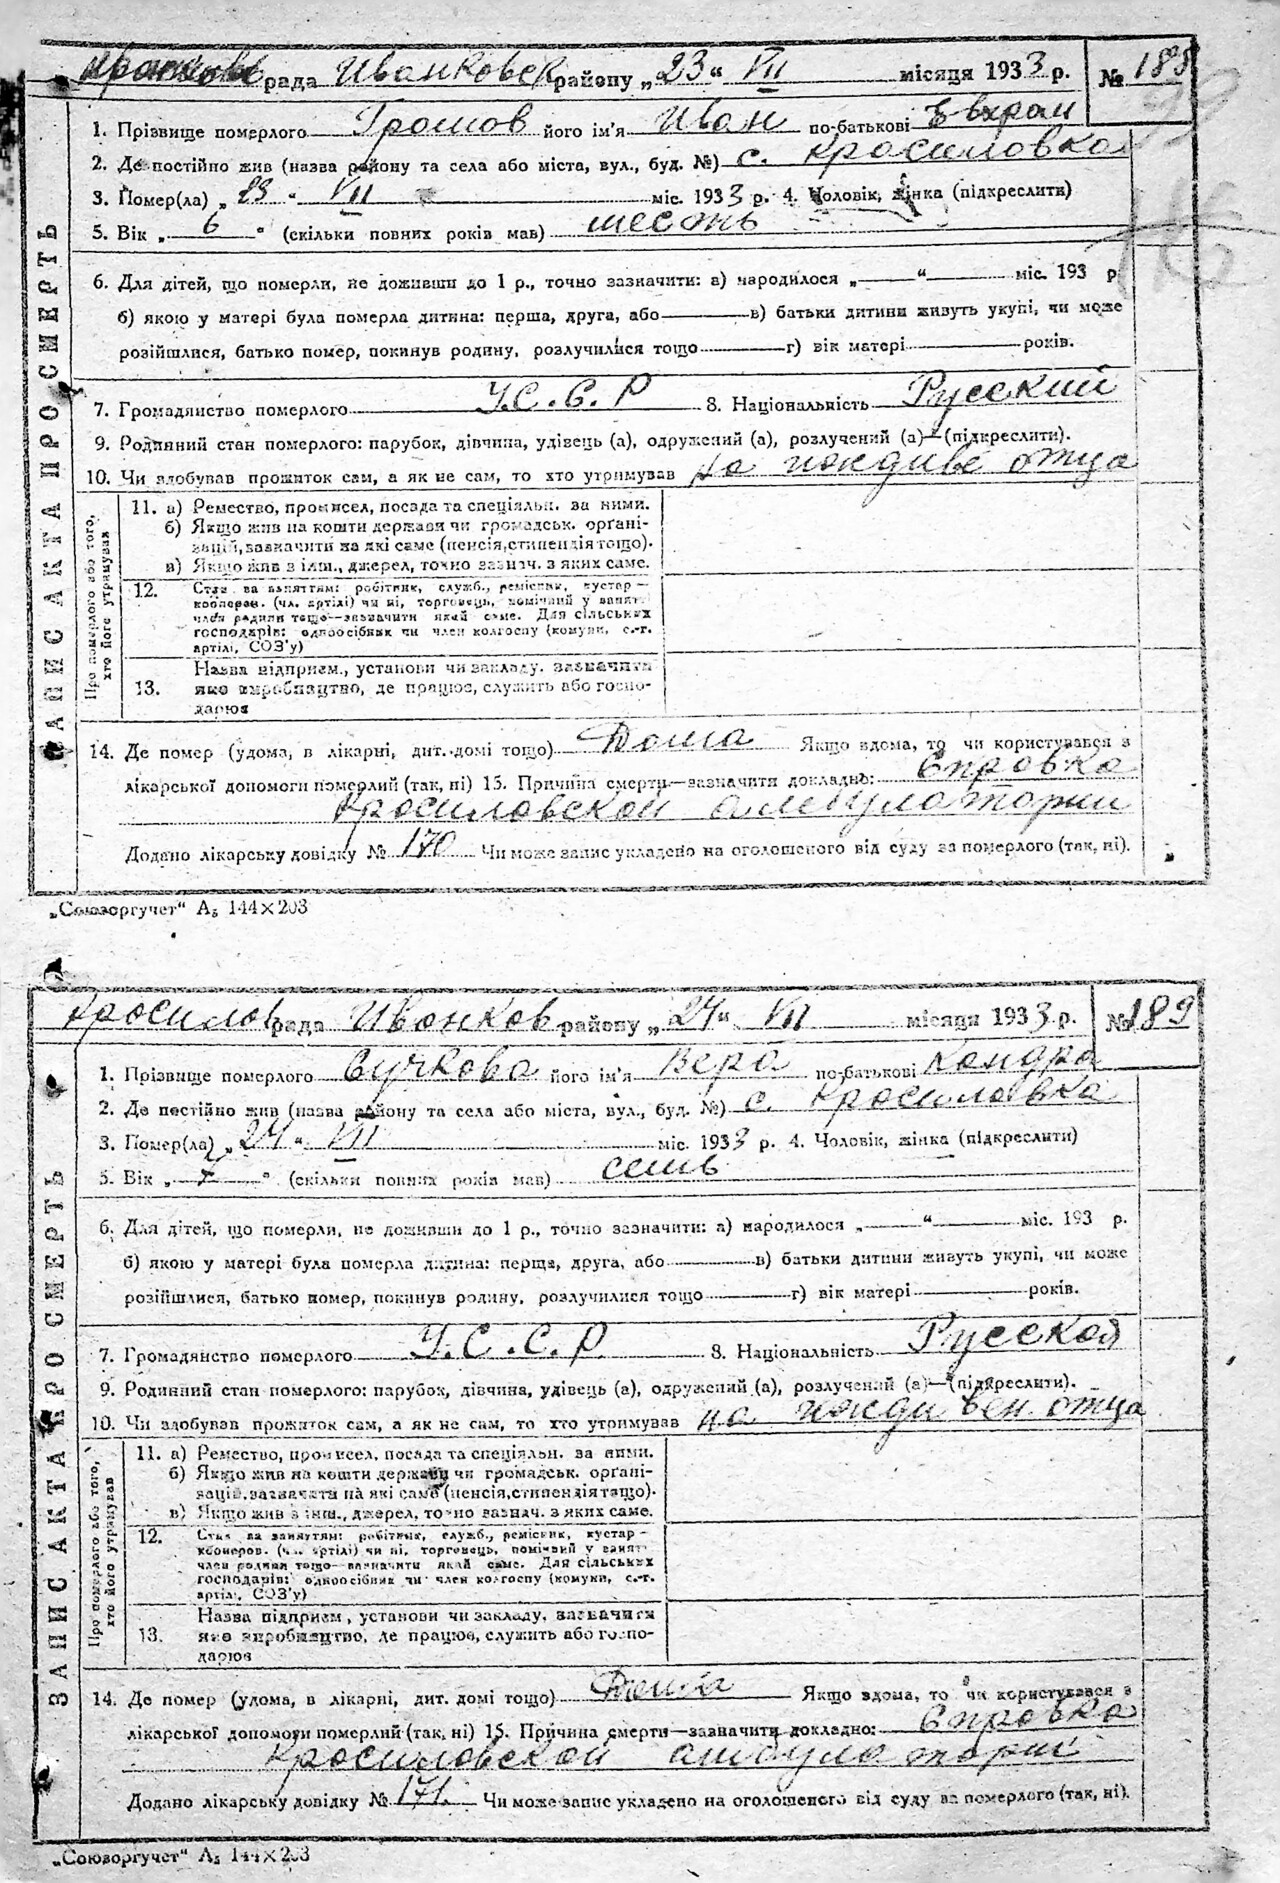 рада Иванковск району „23“ VII місяця 1933 р. № 188
1. Прізвище померлого Громов його ім'я Иван по-батькові Евхрам
2. Де постійно жив (назва району та села або міста, вул., буд. №) с. Красиловка
3. Помер(ла) „23“ VII міс. 1933 р. 4. Чоловік, жінка (підкреслити)
5. Вік „6“ (скільки повних років мав) шесть
6. Для дітей, що померли, не доживши до 1 р., точно зазначити: а) народилося „ “ міс. 193 р.
б) якою у матері була померла дитина: перша, друга, або в) батьки дитини живуть укупі, чи може
розійшлися, батько помер, покинув родину, розлучилися тощо г) вік матері років.
7. Громадянство померлого У.С.С.Р 8. Національність Русский
9. Родинний стан померлого: парубок, дівчина, удівець (а), одружений (а), розлучений (а)—(підкреслити).
10. Чи здобував прожиток сам, а як не сам, то хто утримував На иждиве отца
ЗАПИС АКТА ПРО СМЕРТЬ
Про померлого або того, хто його утримував
11. а) Ремество, промисел, посада та спеціяльн. за ними.
б) Якщо жив на кошти держави чи громадськ. орґані-
зацій, зазначити на які саме (пенсія, стипендія тощо).
в) Якщо жив з інш., джерел, точно зазнач. з яких саме.
12. Стан за заняттям: робітник, служб., ремісник, кустар—
кооперов. (чл. артілі) чи ні, торговець, помічний у занятт
член родини тощо—зазначити який саме. Для сільських
господарів: одноосібник чи член колгоспу (комуни, с.-г.
артілі, СОЗ'у)
Назва підприєм., установи чи закладу, зазначити
13. яке виробництво, де працює, служить або госпо-
дарює
14. Де помер (удома, в лікарні, дит. домі тощо) Дома Якщо вдома, то чи користувався з
лікарської допомоги померлий (так, ні) 15. Причина смерти—зазначити докладно: Справка
Красиловской амбулатории
Додано лікарську довідку № 170 Чи може запис укладено на оголошеного від суду за померлого (так, ні).
„Союзоргучет“ А5 144×203
Красилов рада Иванков району „24“ VII місяця 1933 р. № 189
1. Прізвище померлого Сучкова його ім'я Вера по-батькові Кондра
2. Де постійно жив (назва району та села або міста, вул., буд. №) с. Красиловка
3. Помер(ла) „24“ VII міс. 1933 р. 4. Чоловік, жінка (підкреслити)
5. Вік „7“ (скільки повних років мав) семь
6. Для дітей, що померли, не доживши до 1 р., точно зазначити: а) народилося „ “ міс. 193 р.
б) якою у матері була померла дитина: перша, друга, або в) батьки дитини живуть укупі, чи може
розійшлися, батько помер, покинув родину, розлучилися тощо г) вік матері років.
7. Громадянство померлого У.С.С.Р. 8. Національність Русская
9. Родинний стан померлого: парубок, дівчина, удівець (а), одружений (а), розлучений (а)—(підкреслити).
10. Чи здобував прожиток сам, а як не сам, то хто утримував на иждивен отца
ЗАПИС АКТА ПРО СМЕРТЬ
Про померлого або того, хто його утримував
11. а) Ремество, промисел, посада та спеціяльн. за ними.
б) Якщо жив на кошти держави чи громадськ. орґані-
зацій, зазначити на які саме (пенсія, стипендія тощо).
в) Якщо жив з інш., джерел, точно зазнач. з яких саме.
12. Стан за заняттям: робітник, служб., ремісник, кустар—
кооперов. (чл. артілі) чи ні, торговець, помічний у занятт
член родини тощо—зазначити який саме. Для сільських
господарів: одноосібник чи член колгоспу (комуни, с.-г.
артілі, СОЗ'у)
Назва підприєм., установи чи закладу, зазначити
13. яке виробництво, де працює, служить або госпо-
дарює
14. Де помер (удома, в лікарні, дит. домі тощо) Дома Якщо вдома, то чи користувався з
лікарської допомоги померлий (так, ні) 15. Причина смерти—зазначити докладно: Справка
Красиловской амбулатории
Додано лікарську довідку № 171. Чи може запис укладено на оголошеного від суду за померлого (так, ні).
„Союзоргучет“ А5 144×203